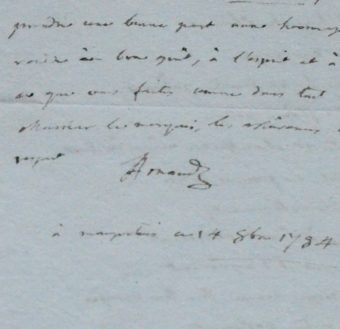 prendre une bonne part aux hommages
rendre à un bon goût, à l'esprit et à
ce que vous faites comme dans tout
Monsieur le marquis, les
respect
Arnaud
à ce 14 8bre 1784